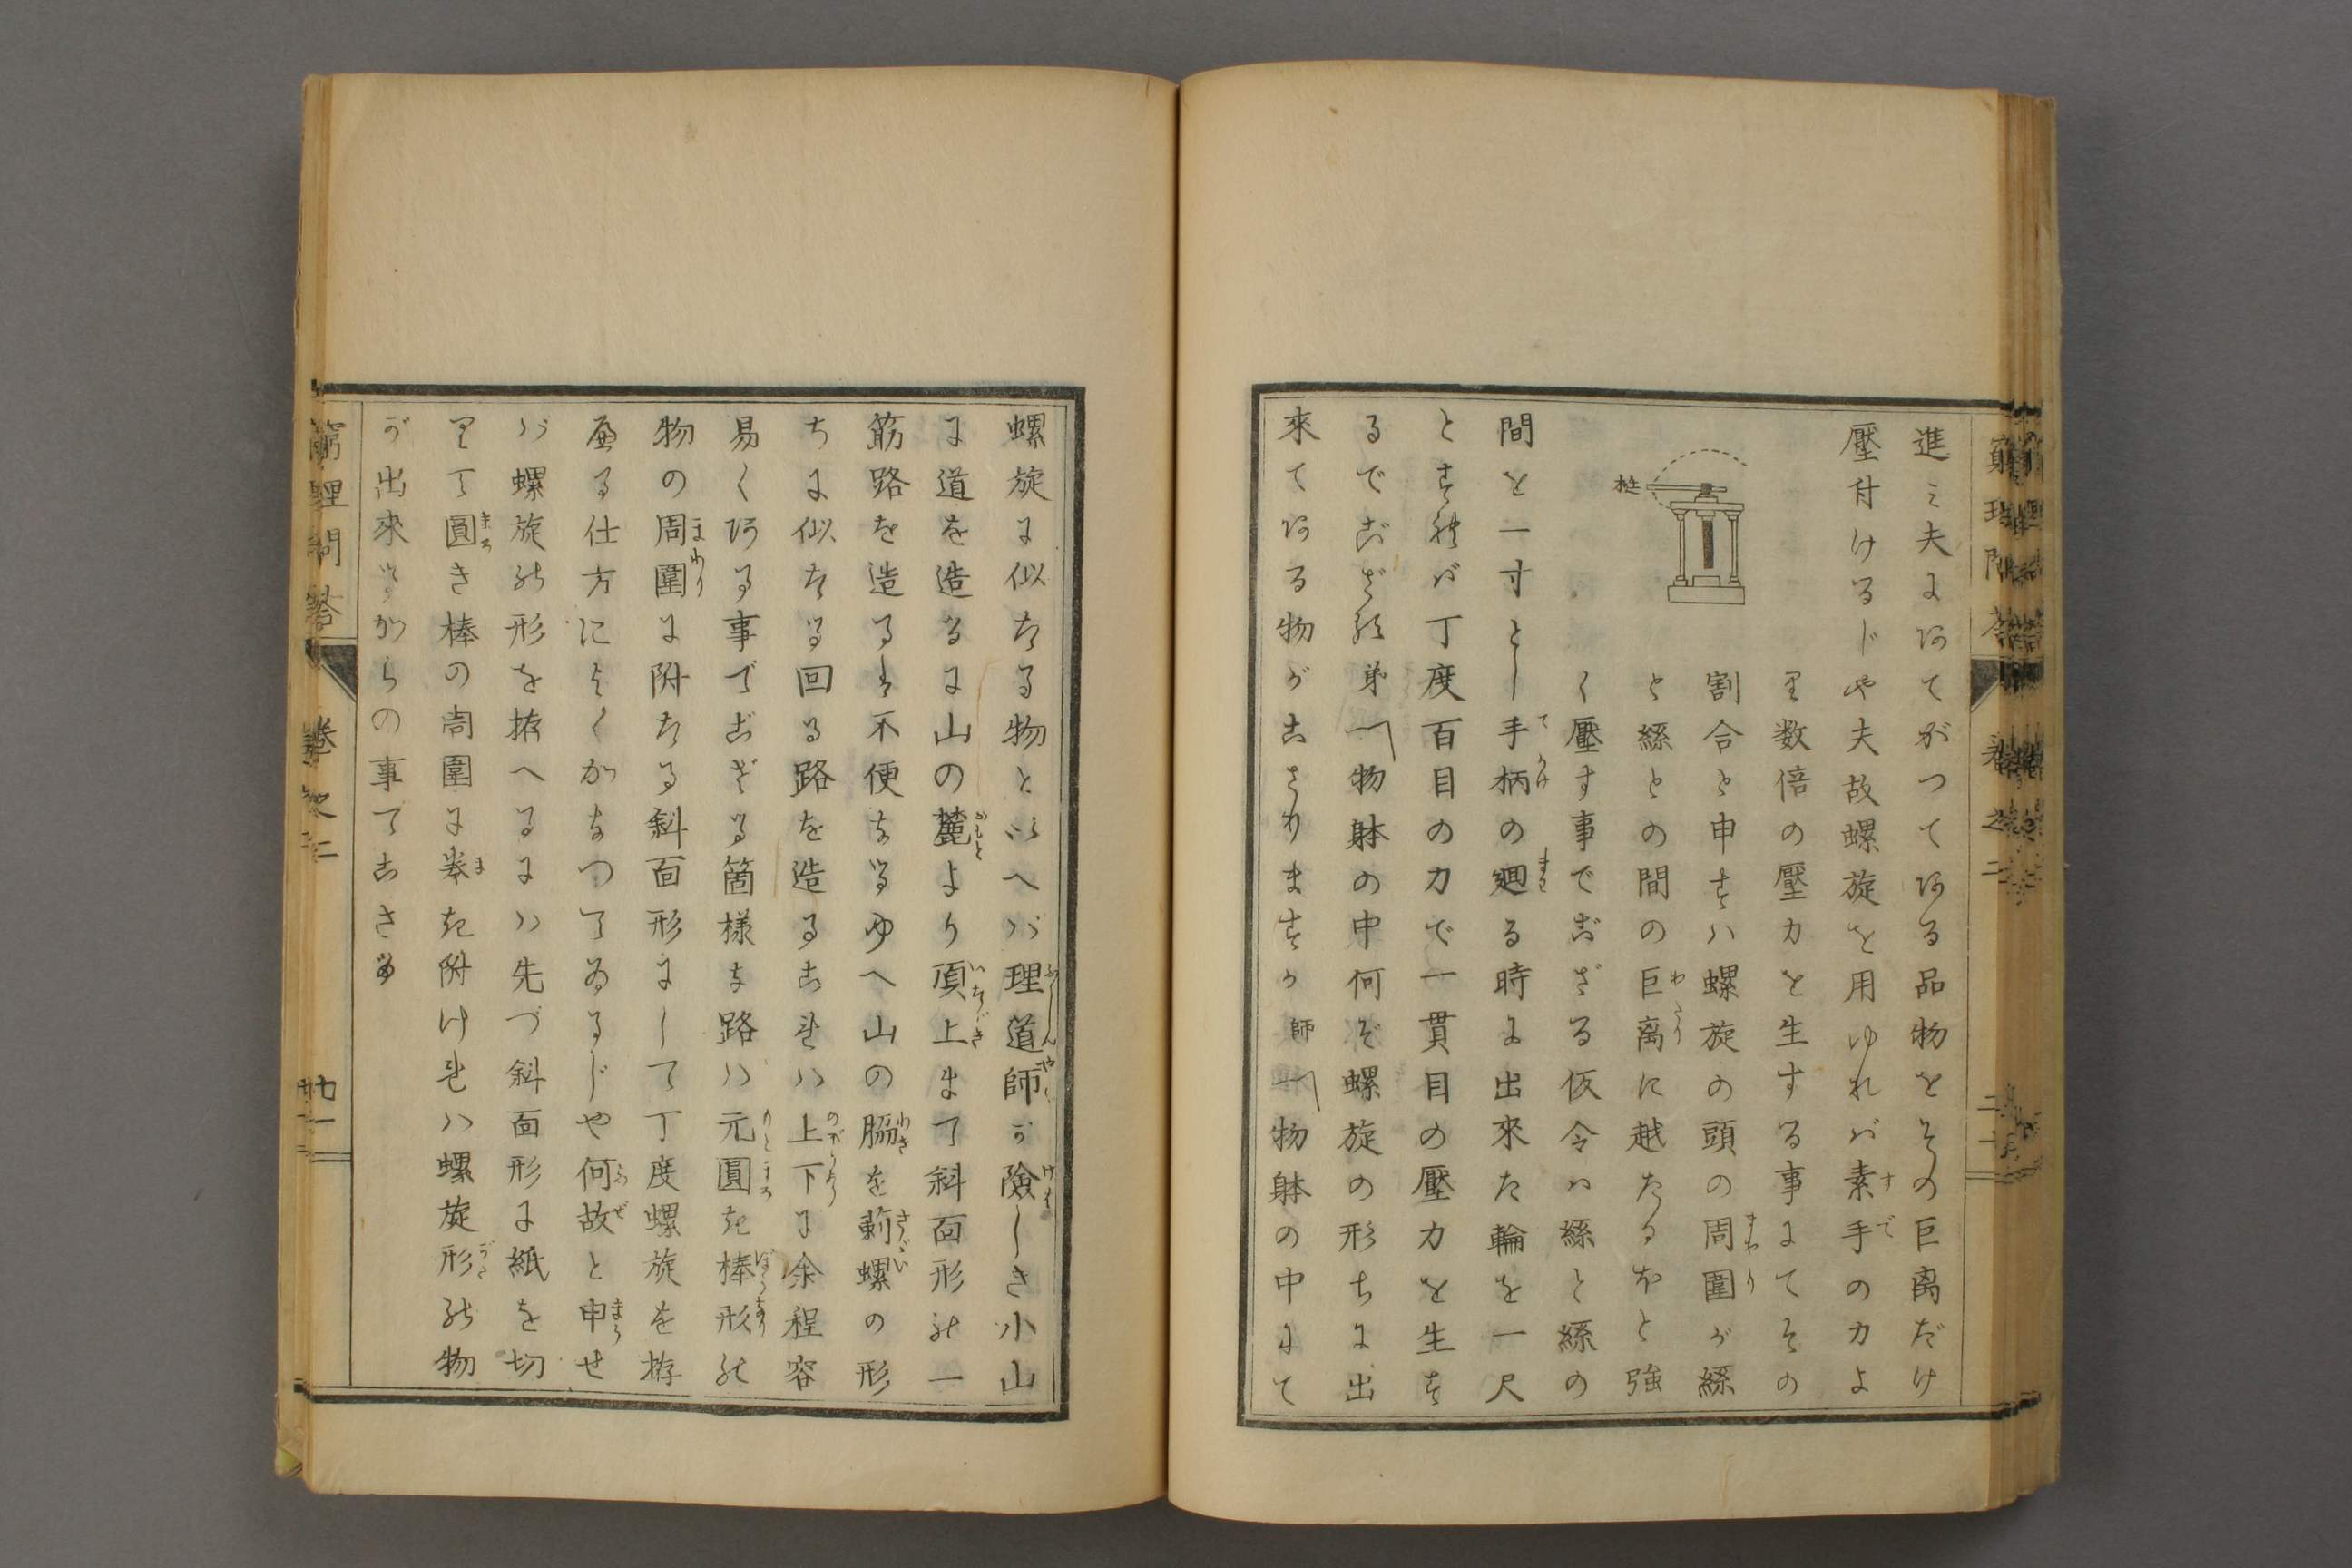 進ミ夫にあてがつてある品物をその巨离だけ
壓付けるじや夫故螺旋を用ゆれバ素手のカよ
り数倍の壓力を生する事にてその
割合と申すハ螺旋の頭の周圍が繇
と繇との間の巨离に越たるほと強
く壓す事でござる仮令ハ繇と繇の
間を一寸とし手柄の廻る時に出來た輪を一尺
とすれバ丁度百目の力で一貫目の壓力を生す
るでござる 弟 物躰の中何ぞ螺旋の形ちに出
來てある物がござりますか 師 物躰の中にて
桩
螺旋に似たる物といへバ理道師が險しき小山
に道を造るに山の麓より頂上まて斜面形の一
筋路を造るは不便なるゆへ山の脇を蝲螺の形
ちに似たる回る路を造るこれハ上下に余程容
易くある事でござる箇様な路ハ元圓き棒形の
物の周圍に附たる斜面形にして丁度螺旋を拵
る仕方によくかなつてゐるじや何故と申せ
バ螺旋の形を拵へるにハ先づ斜面形に紙を切
りて圓き棒の周圍に巻き附けれハ螺旋形の物
が出來るからの事でござる
窮理問答 巻之二 廿一